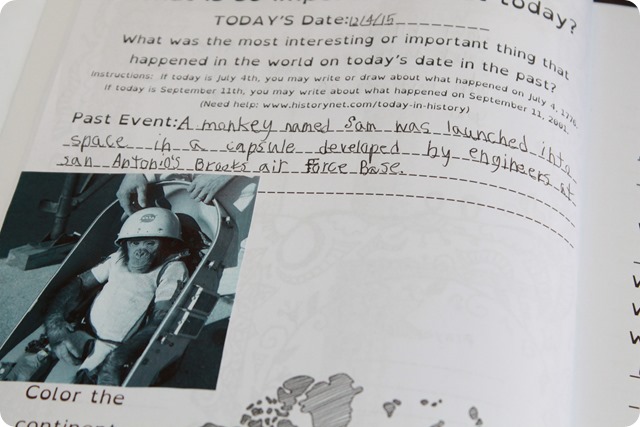 today?
TODAY'S Date: 12/4/15
What was the most interesting or important thing that
happened in the world on today's date in the past?
Instructions: If today is July 4th, you may write or draw about what happened on July 4, 1776.
If today is September 11th, you may write about what happened on September 11, 2001.
(Need help: www.historynet.com/today-in-history)
Past Event: A monkey named Sam was launched into
space in a capsule developed by engineers at
san Antonio's Brooks air Force Base.
Color the